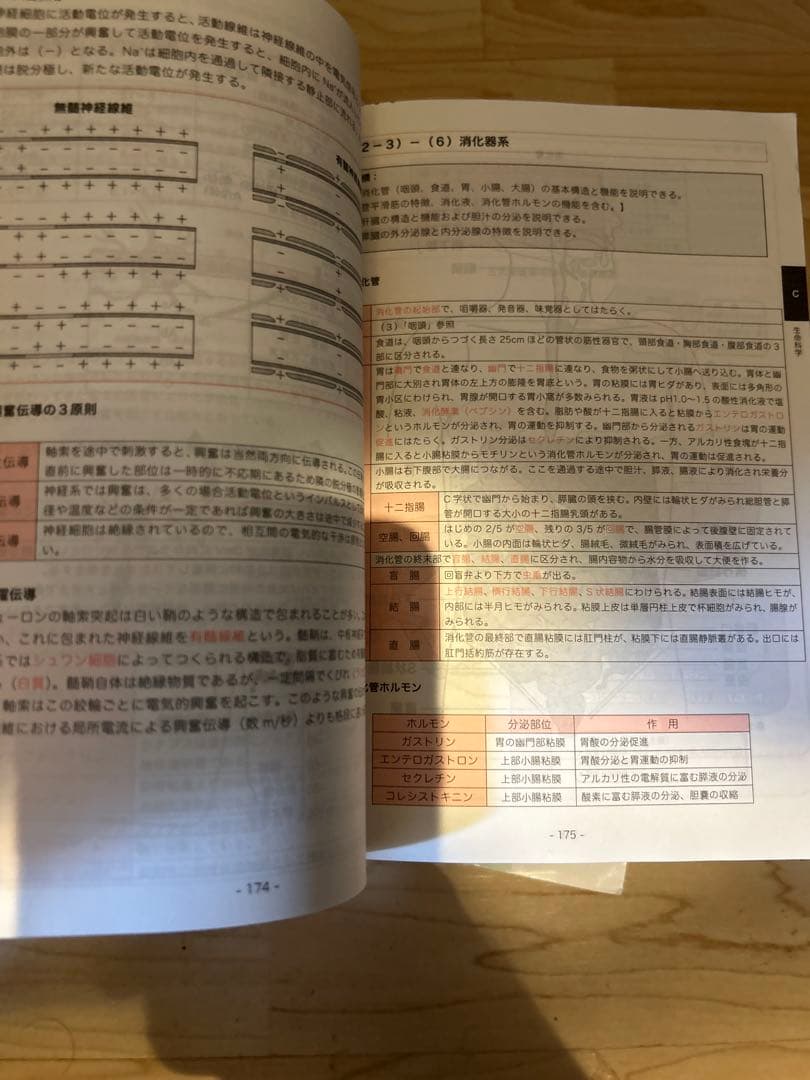 経細胞に活動電位が発生すると、活動線維は神経線維の中を電気
膜の一部分が興奮して活動電位を発生すると、細胞内に Na⁺が
外は（−）となる。Na⁺は細胞内を通過して隣接する静止部に
は脱分極し、新たな活動電位が発生する。
無髄神経線維
奮伝導の３原則
伝導
軸索を途中で刺激すると、興奮は当然両方向に伝導される。
直前に興奮した部位は一時的に不応期にあるため
伝導
神経系では興奮は、多くの場合活動電位というインパルスとし
径や温度などの条件が一定であれば興奮の大きさは途中で
伝導
神経細胞は絶縁されているので、相互間の電気的な干渉は
い。
伝導
ューロンの軸索突起は白い鞘のような構造で包まれることが多い
い、これに包まれた神経線維を有髄線維という。髄鞘は、中枢神経
ではシュワン細胞によってつくられる構造で、脂質に富むため
（白質）。髄鞘自体は絶縁物質であるが、一定間隔でくびれ
軸索はこの絞輪ごとに電気的興奮を起こす。このような興奮
維における局所電流による興奮伝導（数 m/秒）よりも
- 174 -
２−３）−（６）消化器系
標：
消化管（咽頭、食道、胃、小腸、大腸）の基本構造と機能を説明できる。
平滑筋の特徴、消化液、消化管ホルモンの機能を含む。】
肝臓の構造と機能および胆汁の分泌を説明できる。
膵臓の外分泌腺と内分泌腺の特徴を説明できる。
化管
消化管の起始部で、咀嚼器、発音器、味覚器としてはたらく。
（３）「咽頭」参照
食道は、咽頭からつづく長さ 25cm ほどの管状の筋性器官で、頸部食道・胸部食道・腹部食道の３
部に区分される。
胃は噴門で食道と連なり、幽門で十二指腸に連なり、食物を粥状にして小腸へ送り込む。胃体と幽
門部に大別され胃体の左上方の膨隆を胃底という。胃の粘膜には胃ヒダがあり、表面には多角形の
胃小区にわけられ、胃腺が開口する胃小窩が多数みられる。胃液は pH1.0〜1.5 の酸性消化液で塩
酸、粘液、消化酵素（ペプシン）を含む。脂肪や酸が十二指腸に入ると粘膜からエンテロガストロ
ンというホルモンが分泌され、胃の運動を抑制する。幽門部から分泌されるガストリンは胃の運動
促進にはたらく。ガストリン分泌はセクレチンにより抑制される。一方、アルカリ性食塊が十二指
腸に入ると小腸粘膜からモチリンという消化管ホルモンが分泌され、胃の運動は促進される。
小腸は右下腹部で大腸につながる。ここを通過する途中で胆汁、膵液、腸液により消化され栄養分
が吸収される。
十二指腸
C 字状で幽門から始まり、膵臓の頭を挟む。内壁には輪状ヒダがみられ総胆管と膵
管が開口する大小の十二指腸乳頭がある。
空腸、回腸
はじめの 2/5 が空腸、残りの 3/5 が回腸で、腸間膜によって後腹壁に固定されてい
る。小腸の内面は輪状ヒダ、腸絨毛、微絨毛がみられ、表面積を広げている。
消化管の終末部で盲腸、結腸、直腸に区分され、腸内容物から水分を吸収して大便を作る。
盲　腸
回盲弁より下方で虫垂が出る。
結　腸
上行結腸、横行結腸、下行結腸、S 状結腸にわけられる。結腸表面には結腸ヒモが、
内部には半月ヒモがみられる。粘膜上皮は単層円柱上皮で杯細胞がみられ、腸腺が
みられる。
直　腸
消化管の最終部で直腸粘膜には肛門柱が、粘膜下には直腸静脈叢がある。出口には
肛門括約筋が存在する。
化管ホルモン
ホルモン　分泌部位　作　用
ガストリン　胃の幽門部粘膜　胃酸の分泌促進
エンテロガストロン　上部小腸粘膜　胃酸分泌と胃運動の抑制
セクレチン　上部小腸粘膜　アルカリ性の電解質に富む膵液の分泌
コレシストキニン　上部小腸粘膜　酸素に富む膵液の分泌、胆嚢の収縮
- 175 -
C
生命科学